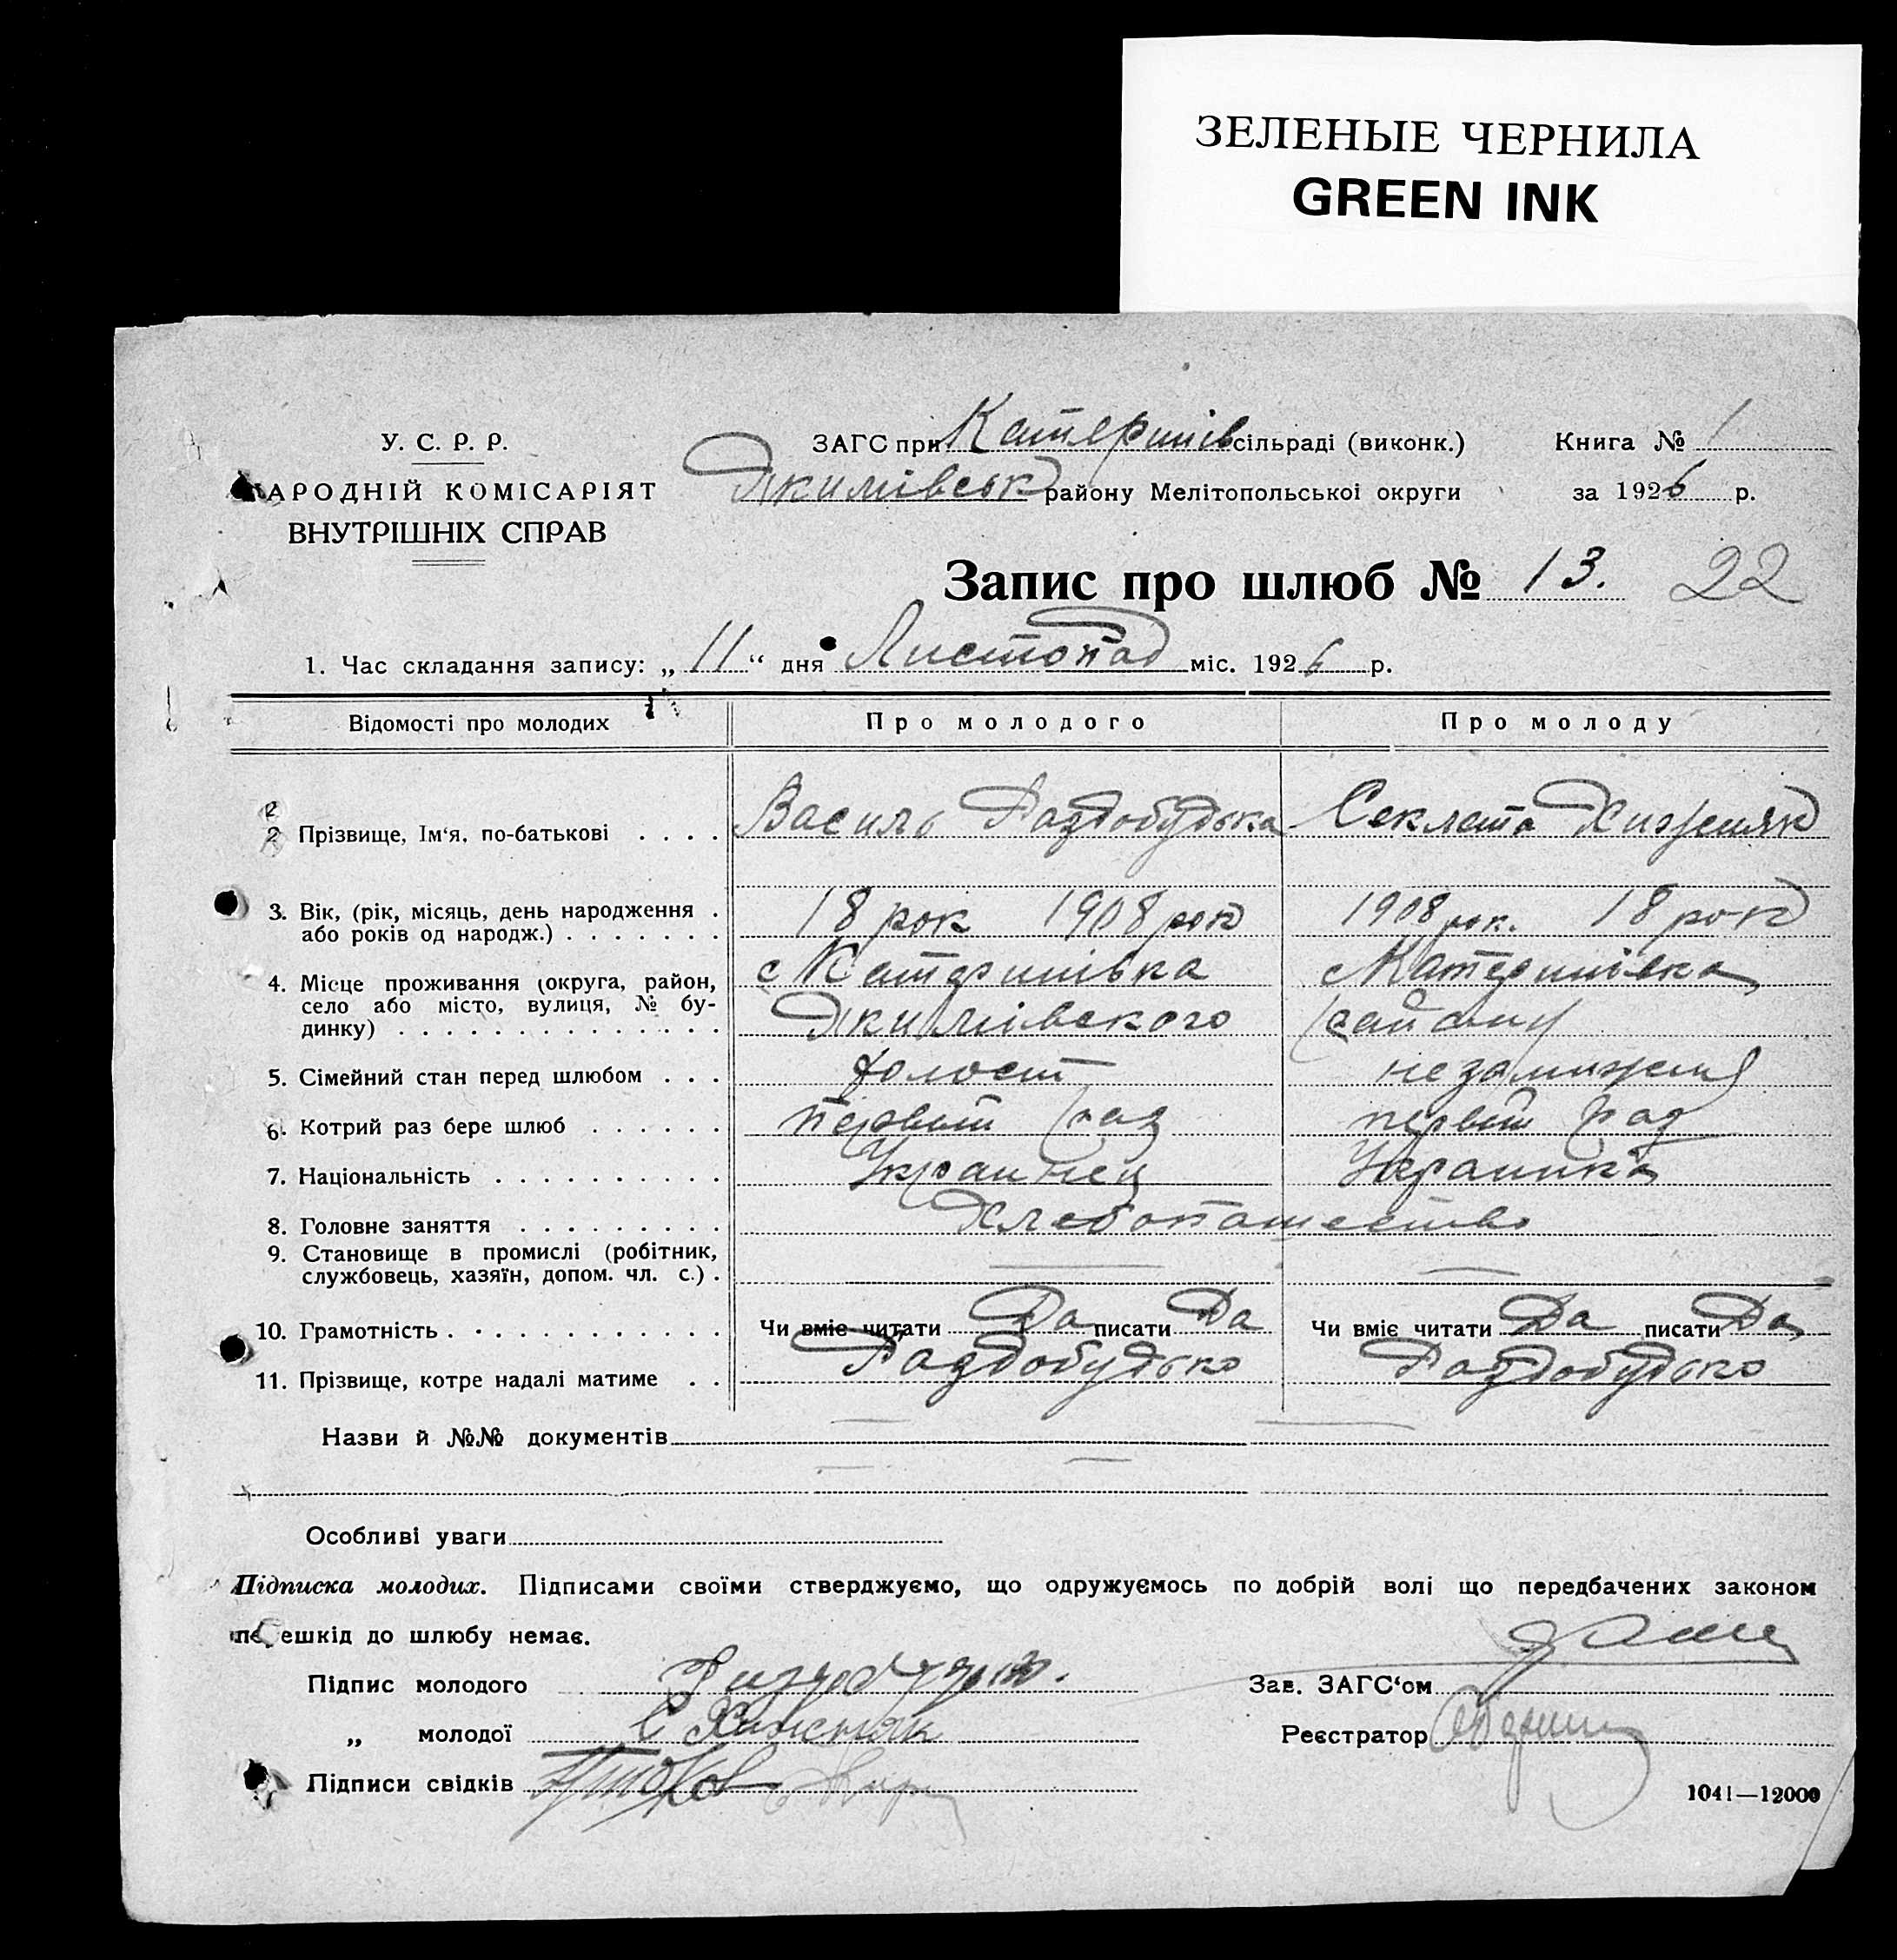 ЗЕЛЕНЫЕ ЧЕРНИЛА
GREEN INK
У. С. Р. Р.
НАРОДНІЙ КОМІСАРІЯТ
ВНУТРІШНІХ СПРАВ
ЗАГС при Катеринів сільраді (виконк.) Книга № 1
Якимівськ району Мелітопольської округи за 1926 р.
Запис про шлюб № 13. 22
1. Час складання запису: „ 11 “ дня Листопад міс. 1926 р.
Відомості про молодих Про молодого Про молоду
2
2 Прізвище, Ім‘я, по-батькові . . . . Василь Раздобудька Секлета Хижняк
3. Вік, (рік, місяць, день народження . 18 рок 1908 рок 1908 рок. 18 рок
або років од народж.) . . . . . . .
4. Місце проживання (округа, район, с Катеринівка с Катеринівка
село або місто, вулиця, № бу-
динку) . . . . . . . . . . . . . . Якимівского району
5. Сімейний стан перед шлюбом . . . холост незамижня
6. Котрий раз бере шлюб . . . . . . первый раз первый раз
7. Національність . . . . . . . . . . Украинец Украинка
8. Головне заняття . . . . . . . . . Хлебопашество
9. Становище в промислі (робітник,
службовець, хазяїн, допом. чл. с.) .
10. Грамотність . . . . . . . . . . . Чи вміє читати Да писати Да Чи вміє читати Да писати Да
11. Прізвище, котре надалі матиме . . Раздобудько Раздобудько
Назви й №№ документів
Особливі уваги
Підписка молодих. Підписами своїми стверджуємо, що одружуємось по добрій волі що передбачених законом
перешкід до шлюбу немає.
Підпис молодого Зав. ЗАГС‘ом
„ молодої С Хижняк Реєстратор
Підписи свідків
1041—12000